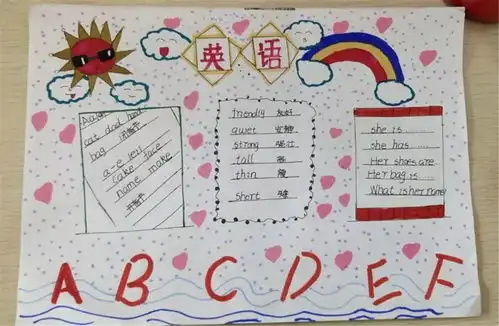 英语
cat dad
bag
开音节
a-e
cake face
name make
开音节
friendly 友好
quiet 安静
strong 强壮
tall 高
thin 瘦
short 矮
she is ......
she has ......
Her shoes are
Her bag is ......
What is her name
A B C D E F